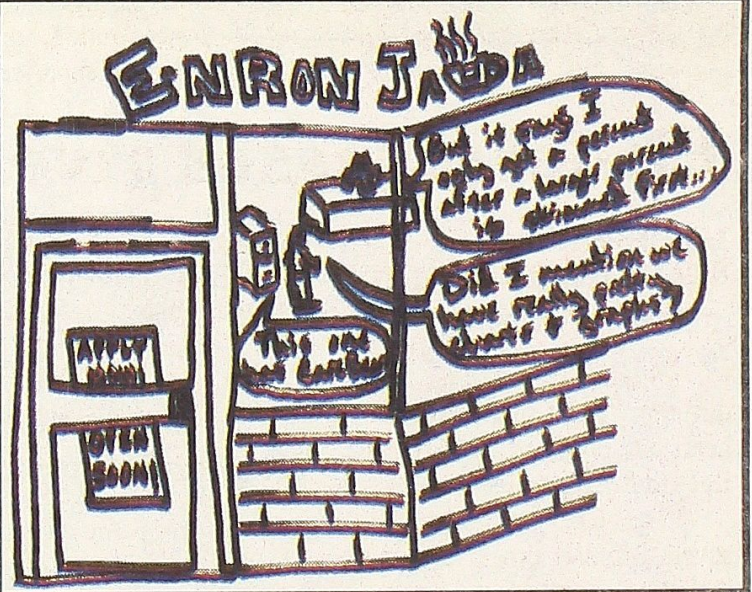 ENRON JAVA
But it says I
only get a percent
after a large percent
is skimmed first...
Did I mention we
have really pretty
charts & graphs?
This one
has
APPLY
NOW!
OPEN
SOON!